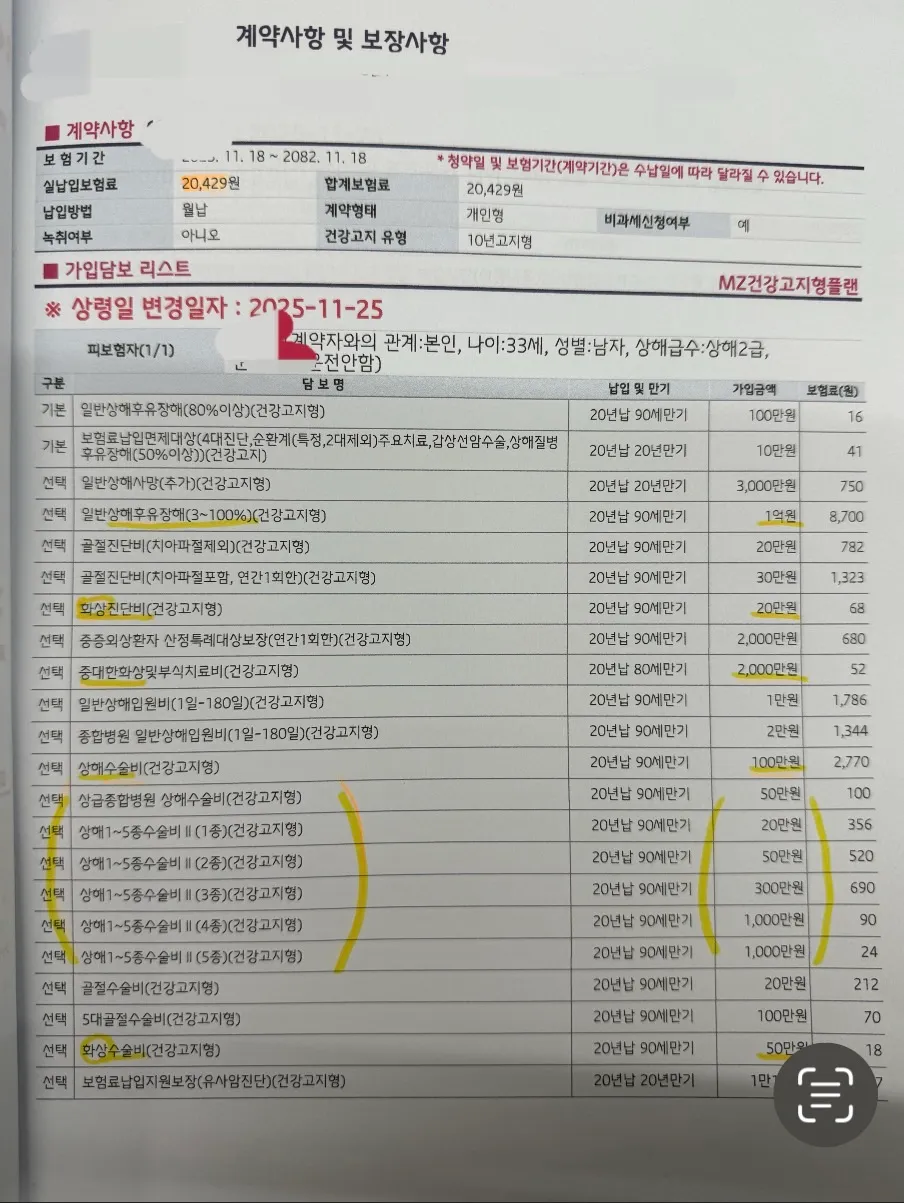 계약사항 및 보장사항
■ 계약사항
보험기간 11. 18 ~ 2082. 11. 18 * 청약일 및 보험기간(계약기간)은 수납일에 따라 달라질 수 있습니다.
실납입보험료 20,429원 합계보험료 20,429원
납입방법 월납 계약형태 개인형 비과세신청여부 예
녹취여부 아니오 건강고지 유형 10년고지형
■ 가입담보 리스트 MZ건강고지형플랜
※ 상령일 변경일자 : 2025-11-25
피보험자(1/1) 계약자와의 관계:본인, 나이:33세, 성별:남자, 상해급수:상해2급,
운전안함)
구분 담보명 납입 및 만기 가입금액 보험료(원)
기본 일반상해후유장해(80%이상)(건강고지형) 20년납 90세만기 100만원 16
기본 보험료납입면제대상(4대진단,순환계(특정,2대제외)주요치료,갑상선암수술,상해질병
후유장해(50%이상))(건강고지) 20년납 20년만기 10만원 41
선택 일반상해사망(추가)(건강고지형) 20년납 20년만기 3,000만원 750
선택 일반상해후유장해(3~100%)(건강고지형) 20년납 90세만기 1억원 8,700
선택 골절진단비(치아파절제외)(건강고지형) 20년납 90세만기 20만원 782
선택 골절진단비(치아파절포함, 연간1회한)(건강고지형) 20년납 90세만기 30만원 1,323
선택 화상진단비(건강고지형) 20년납 90세만기 20만원 68
선택 중증외상환자 산정특례대상보장(연간1회한)(건강고지형) 20년납 90세만기 2,000만원 680
선택 중대한화상및부식치료비(건강고지형) 20년납 80세만기 2,000만원 52
선택 일반상해입원비(1일-180일)(건강고지형) 20년납 90세만기 1만원 1,786
선택 종합병원 일반상해입원비(1일-180일)(건강고지형) 20년납 90세만기 2만원 1,344
선택 상해수술비(건강고지형) 20년납 90세만기 100만원 2,770
선택 상급종합병원 상해수술비(건강고지형) 20년납 90세만기 50만원 100
선택 상해1~5종수술비Ⅱ(1종)(건강고지형) 20년납 90세만기 20만원 356
선택 상해1~5종수술비Ⅱ(2종)(건강고지형) 20년납 90세만기 50만원 520
선택 상해1~5종수술비Ⅱ(3종)(건강고지형) 20년납 90세만기 300만원 690
선택 상해1~5종수술비Ⅱ(4종)(건강고지형) 20년납 90세만기 1,000만원 90
선택 상해1~5종수술비Ⅱ(5종)(건강고지형) 20년납 90세만기 1,000만원 24
선택 골절수술비(건강고지형) 20년납 90세만기 20만원 212
선택 5대골절수술비(건강고지형) 20년납 90세만기 100만원 70
선택 화상수술비(건강고지형) 20년납 90세만기 50만원 18
선택 보험료납입지원보장(유사암진단)(건강고지형) 20년납 20년만기